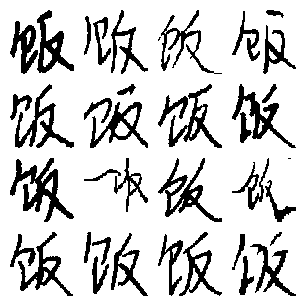 饭饭饭饭
饭饭饭饭
饭饭饭
饭饭饭饭